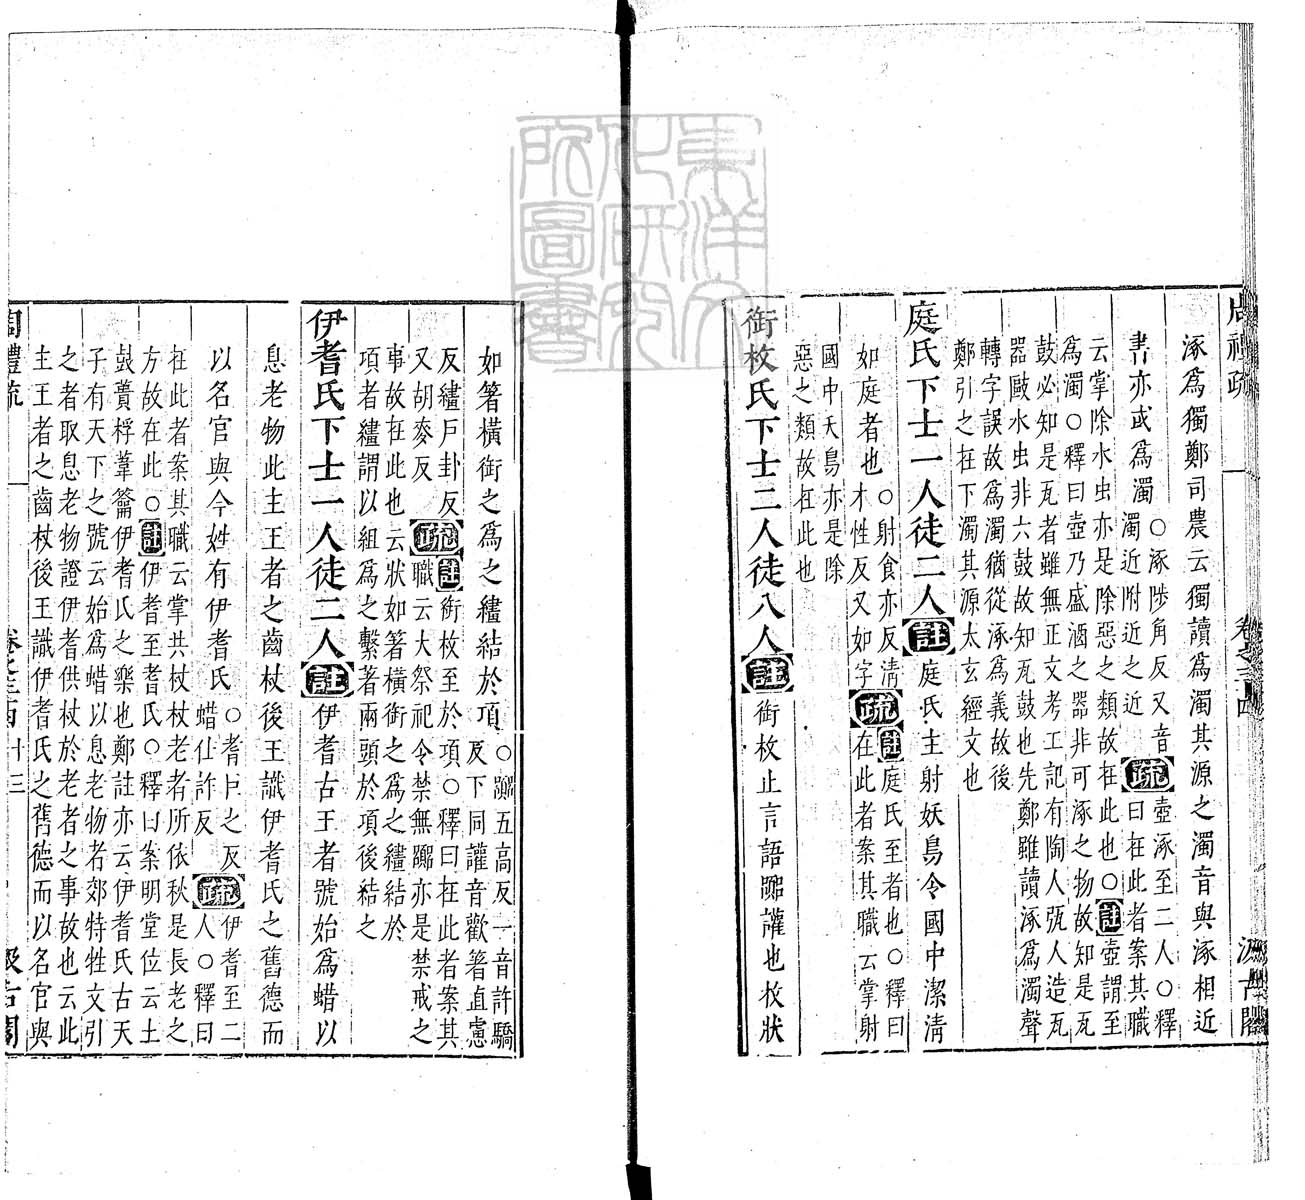 周禮疏
卷之三十四
汲古閣
涿爲獨鄭司農云獨讀爲濁其源之濁音與涿相近
書亦或爲濁
○涿陟角反又音
濁近附近之近
疏
壺涿至二人○釋
曰在此者案其職
云掌除水虫亦是除惡之類故在此也○註壺謂至
爲濁○釋曰壺乃盛酒之器非可涿之物故知是瓦
鼓必知是瓦者雖無正文考工記有陶人瓬人造瓦
器敺水虫非六鼓故知瓦鼓也先鄭雖讀涿爲濁聲
轉字誤故爲濁猶從涿爲義故後
鄭引之在下濁其源太玄經文也
庭氏下士一人徒二人註庭氏主射妖鳥令國中潔清
如庭者也
○射食亦反清
木性反又如字
疏
註庭氏至者也○釋曰
在此者案其職云掌射
國中夭鳥亦是除
惡之類故在此也
銜枚氏下士二人徒八人註銜枚止言語嚻讙也枚狀
如箸橫銜之爲之繣結於項
○嚻五高反一音許驕
反下同讙音歡箸直慮
反繣戶卦反
又胡麥反
疏
註銜枚至於項○釋曰在此者案其
職云大祭祀令禁無嚻亦是禁戒之
事故在此也云狀如箸橫銜之爲之繣結於
項者繣謂以組爲之繫著兩頭於項後結之
伊耆氏下士一人徒二人註伊耆古王者號始爲蜡以
息老物此主王者之齒杖後王識伊耆氏之舊德而
以名官與今姓有伊耆氏
○耆巨之反
蜡仕許反
疏
伊耆至二
人○釋曰
在此者案其職云掌共杖杖老者所依秋是長老之
方故在此○註伊耆至耆氏○釋曰案明堂位云土
鼓蕢桴葦籥伊耆氏之樂也鄭註亦云伊耆氏古天
子有天下之號云始爲蜡以息老物者郊特牲文引
之者取息老物證伊耆供杖於老者之事故也云此
主王者之齒杖後王識伊耆氏之舊德而以名官與
周禮疏
卷之三十四
十三
汲古閣
東洋文化研究所圖書